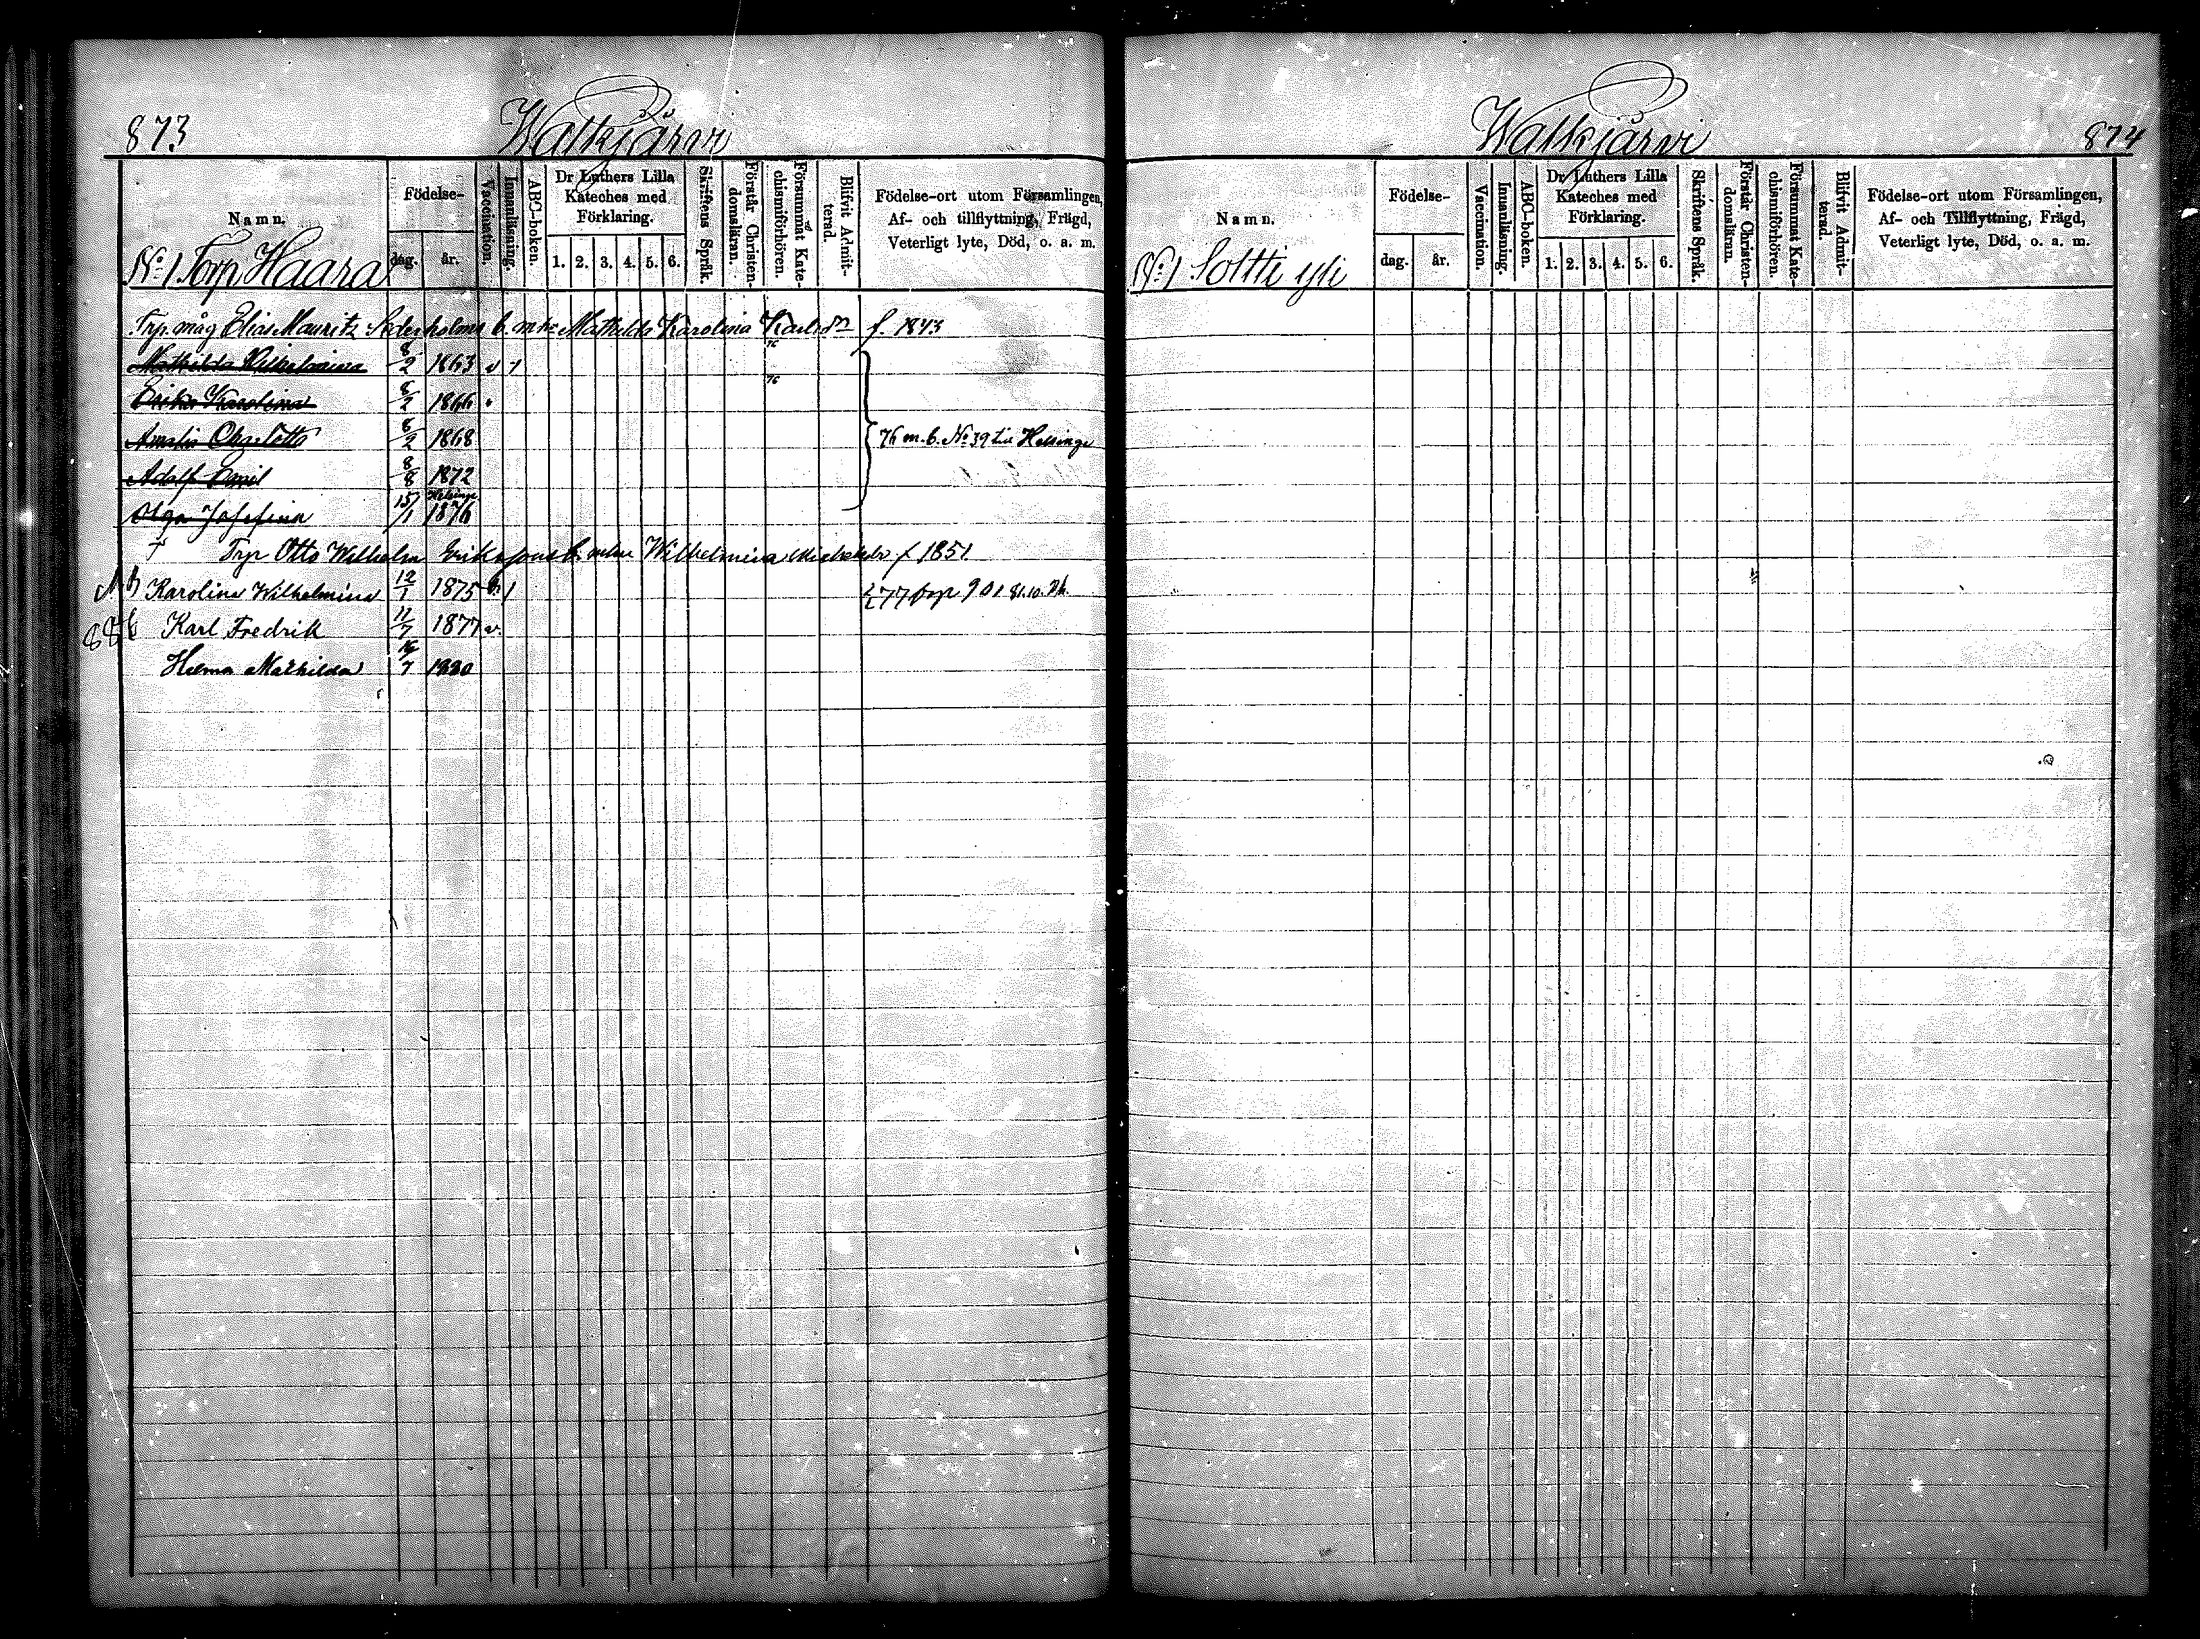 873
Walkjärvi
Namn.
Födelse-
dag.
år.
Vaccination.
Innanläsning.
ABC-boken.
Dr Luthers Lilla
Kateches med
Förklaring.
1. 2. 3. 4. 5. 6.
Skriftens Språk.
Förstår Christen-
domsläran.
Försummat Kate-
chismiförhören.
Blifvit Admit-
terad.
Födelse-ort utom Församlingen,
Af- och tillflyttning, Frägd,
Veterligt lyte, Död, o. a. m.
No 1 Torp Haara
Trp. måg Elias Mauritz Söderholms b. m. h. Mathilda Karolina Karlsdr f. 1843
Mathilda Wilhelmina 8/2 1863 v 1 76
Erika Karolina 8/2 1866 76
Amalia Charlotta 8/2 1868 76 m. b. No 39 till Helsinge
Adolf Emil 8/8 1872
Helsinge
Olga Josefina 15/1 1876
Trp Otto Wilhelm Erikssons b. m. Wilhelmina f. 1851
Karolina Wilhelmina 12/1 1875 v. 1 77 901 81.10.
886 Karl Fredrik 11/7 1877 v.
Helma Mathilda 7 1880
Walkjärvi
874
Namn.
Födelse-
dag.
år.
Vaccination.
Innanläsning.
ABC-boken.
Dr Luthers Lilla
Kateches med
Förklaring.
1. 2. 3. 4. 5. 6.
Skriftens Språk.
Förstår Christen-
domsläran.
Försummat Kate-
chismiförhören.
Blifvit Admit-
terad.
Födelse-ort utom Församlingen,
Af- och Tillflyttning, Frägd,
Veterligt lyte, Död, o. a. m.
No 1 Soltti yli